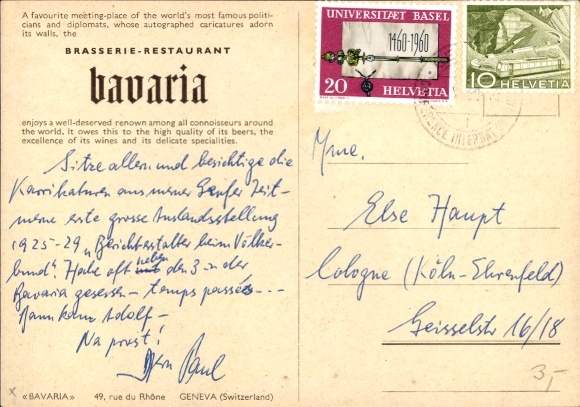 A favourite meeting-place of the world's most famous politi-
cians and diplomats, whose autographed caricatures adorn
its walls, the
BRASSERIE-RESTAURANT
bavaria
enjoys a well-deserved renown among all connoisseurs around
the world. It owes this to the high quality of its beers, the
excellence of its wines and its delicate specialities.
Sitze allein und besichtige die
Karrikaturen aus meiner Genfer Zeit –
meine erste grosse Auslandsstellung
1925-29 „Berichterstatter beim Völker-
bund". Habe oft neben den 3 in der
Bavaria gesessen – temps passés ---
Dann kam Adolf –
Na prost!
Paul
«BAVARIA» 49, rue du Rhône GENEVA (Switzerland)
UNIVERSITAET BASEL
1460-1960
20 HELVETIA
10 HELVETIA
Mme.
Else Haupt
Cologne (Köln-Ehrenfeld)
Geisselstr 16/18
3,-